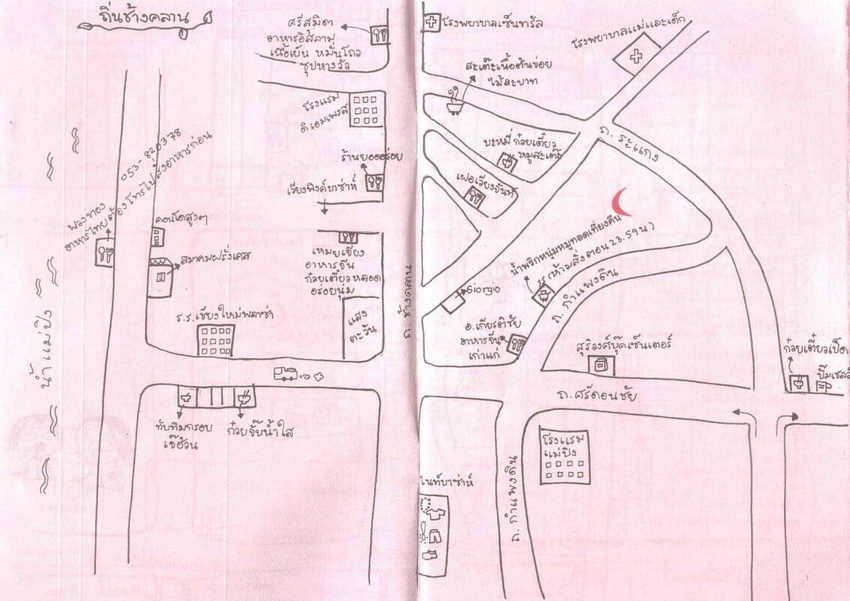 ถิ่นช้างคลาน
ศรีสมิตา
อาหารอิสลาม
เนื้อเย็น หมั่นโถว
ซุปหางวัว
โรงพยาบาลเซ็นทรัล
โรงพยาบาลแม่และเด็ก
สะเต๊ะเนื้อต้นข่อย
ไม้ละบาท
โรงแรม
ดิเอมเพรส
ถ. ระแกง
บะหมี่ ก๋วยเตี๋ยว
หมูสะเต๊ะ
ร้านยอดอร่อย
เวียงพิงค์บาซ่าห์
เฝอเวียงจันท์
พวงทอง 053-820378
อาหารไทย ต้องโทรไปสั่งอาหารก่อน
คอนโดสูงๆ
สมาคมฝรั่งเศส
เหมยเจียง
อาหารจีน
ก๋วยเตี๋ยวหลอด
อร่อยนุ่ม
น้ำพริกหนุ่มหมูทอดเที่ยงคืน
(ห้ามสั่งตอน 23.59 น)
Giorgio
ถ. กำแพงดิน
ถ. ช้างคลาน
ร.ร. เชียงใหม่พลาซ่า
แสง
ตะวัน
อ.เกียรติชัย
อาหารจีน
เก่าแก่
สุริวงศ์บุ๊คเซ็นเตอร์
ก๋วยเตี๋ยวเป็ด
ปั๊มเชลล์
น้ำแม่ปิง
ถ. ศรีดอนชัย
ทับทิมกรอบ
เจ๊อ้วน
ก๋วยจั๊บน้ำใส
โรงแรม
แม่ปิง
ไนท์บาซ่าห์
ถ. กำแพงดิน